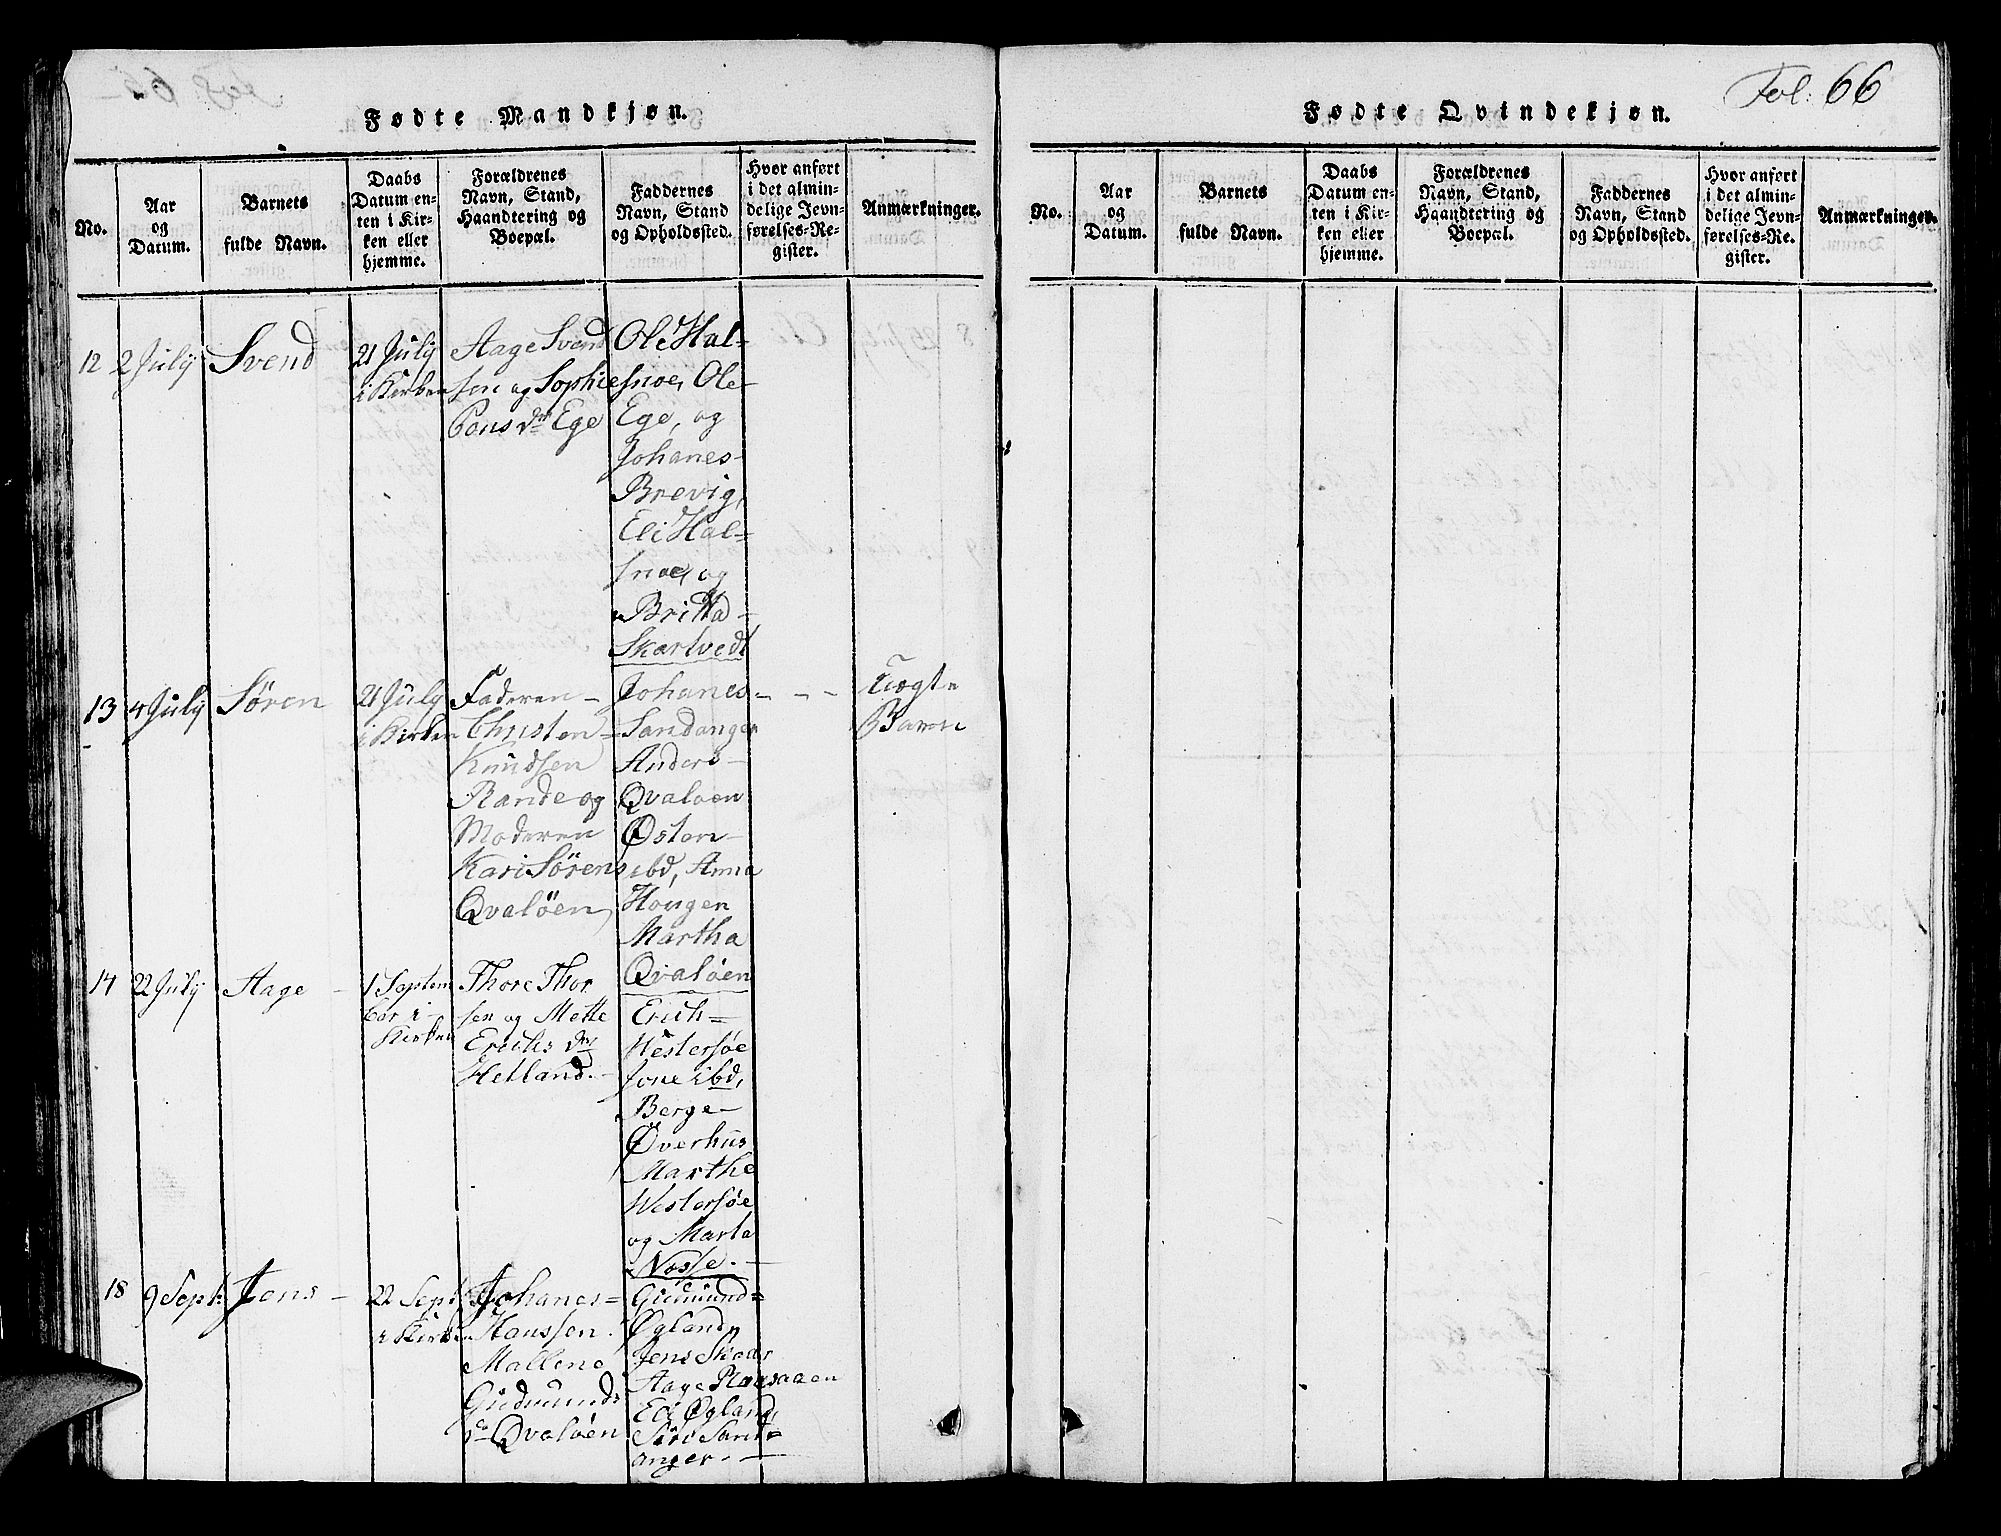 Fol: 66
Fødte Mandkjøn.
No.
Aar
og
Datum.
Barnets
fulde Navn.
Daabs
Datum en-
ten i Kir-
ken eller
hjemme.
Forældrenes
Navn, Stand,
Haandtering og
Boepæl.
Faddernes
Navn, Stand
og Opholdssted.
Hvor anført
i det almin-
delige Jevn-
førelses-Re-
gister.
Anmærkninger.
12
2 July
Svend
21 July
i Kirken
Aage Svend
sen og Sophie
Pons dtr Ege
Ole Hal=
snoe, Ole
Ege, og
Johanes
Brevig,
Eli Hal=
snoe, og
Britta
Skartvedt
13
4 July
Søren
21 July
i Kirken
Faderen
Christen
Knudsen
Rande og
Moderen
Kari Sørens
Qvaløen
Johanes
Sandanger
Anders
Qvaløen
Østen
ibd, Anna
Hougen
Martha
Qvaløen
Uægte
Barn
14
22 July
Aage
1 Septem
ber i
Kirken
Thore Thor
sen og Mette
Erichs dtr
Hetland.
Erich
Westersøe
Jone ibd,
Berge
Øverhus
Marthe
Westersøe
og Marta
Nosse.
18
9 Sept:
Jens
22 Sept
i Kirken
Johanes
Hanssen
Mallene
Gudmunds
dr Qvaløen
Gudmund=
Øgland,
Jens Skaar
Aage
Eli Øgland,
Siri Sand=
anger.
Fødte Qvindekjøn.
No.
Aar
og
Datum.
Barnets
fulde Navn.
Daabs
Datum en-
ten i Kir-
ken eller
hjemme.
Forældrenes
Navn, Stand,
Haandtering og
Boepæl.
Faddernes
Navn, Stand
og Opholdssted.
Hvor anført
i det almin-
delige Jevn-
førelses-Re-
gister.
Anmærkninger.